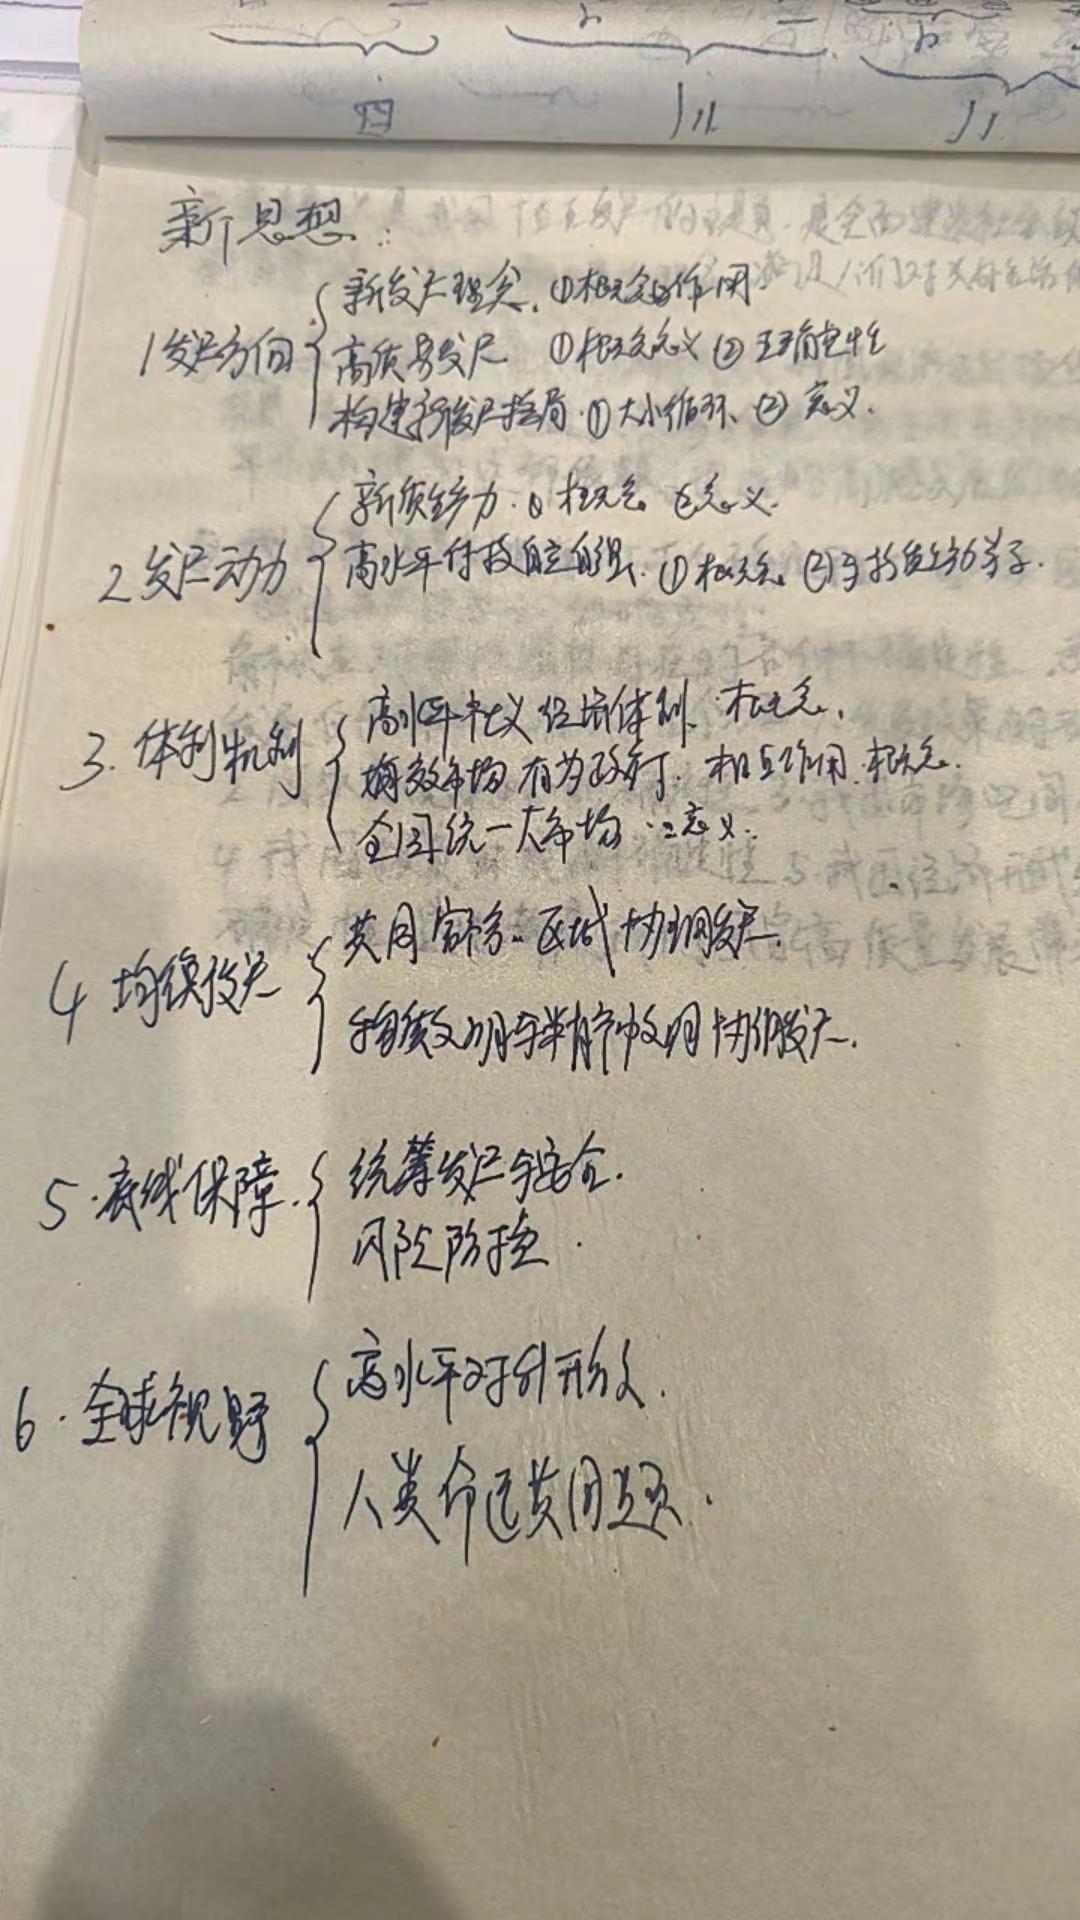 四
新思想:
1 发展方向
新发展理念. ①概念②作用
高质量发展 ①概念意义 ②正确定性
构建新发展格局. ①大小循环、② 意义.
2 发展动力
新质生产力. ① 概念 ②意义.
高水平科技自立自强. ①概念. ②与新质生产力关系.
3. 体制机制
高水平社会主义经济体制. 概念.
有效市场 有为政府. 相互作用. 概念.
全国统一大市场. 意义.
4 均衡发展
共同富裕.. 区域协调发展.
物质文明与精神文明协调发展.
5. 底线保障.
统筹发展与安全.
风险防控.
6. 全球视野
高水平对外开放.
人类命运共同题.